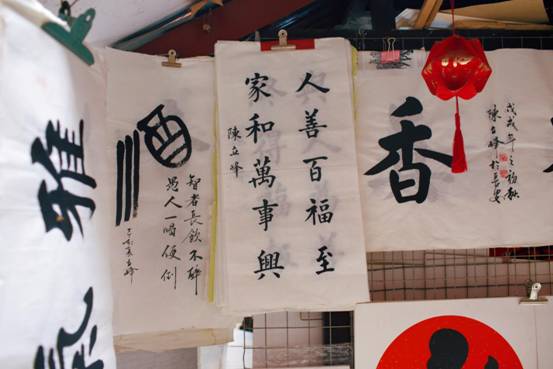 雅
酒
智者長飲不醉
愚人一喝便倒
人善百福至
家和萬事興
陳立峰
香
戊戌年之初秋
陳立峰於長安